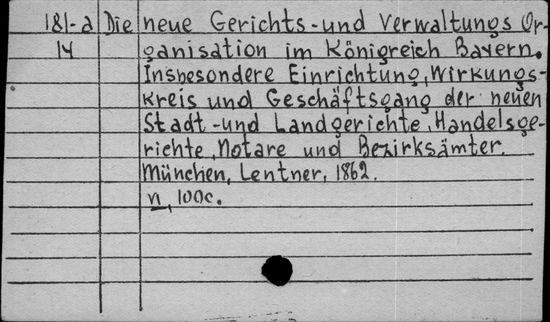 181-a Die neue Gerichts-und Verwaltungs Or-
14 ganisation im Königreich Bayern.
Insbesondere Einrichtung, Wirkungs-
kreis und Geschäftsgang der neuen
Stadt-und Landgerichte, Handelsge-
richte, Notare und Bezirksämter.
München, Lentner, 1862.
n, 100c.